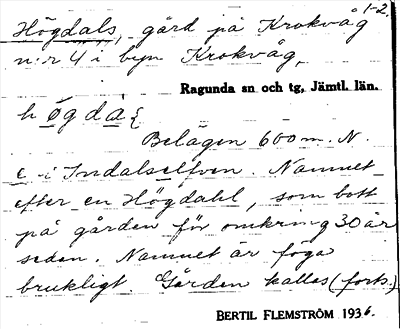 1-2.
Högdals, gård på Krokvåg
n:r 4 i byn Krokvåg,
Ragunda sn och tg, Jämtl. län.
högda{
Belägen 600 m. N.
e. i Indalselfven. Namnet
efter en Högdahl, som bott
på gården för omkring 30 år
sedan. Namnet är föga
brukligt. Gården kallas (forts.)
BERTIL FLEMSTRÖM 1936.